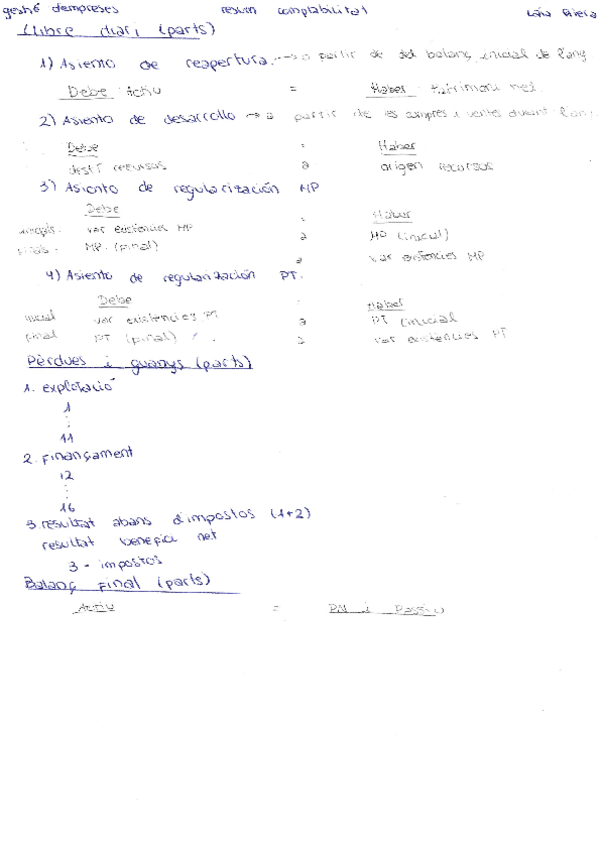 gestió d'empreses resum comptabilitat Laia Rivera
Llibre diari (parts)
1) Asiento de reapertura. → a partir de del balanç inicial de l'any
Debe Activ = Haber patrimoni net.
2) Asiento de desarrollo → a partir de les compres i ventes durant l'any.
Debe : Haber
destí recursos a origen recursos
3) Asiento de regularización MP
Debe : Haber
var existencies MP a MP (inicial)
MP. (final) a var existencies MP
4) Asiento de regularización PT.
Debe : Haber
inicial var existencies PT a PT (inicial
final PT (final) a var existencies PT
Pèrdues i guanys (parts)
1. explotació
1
⋮
11
2. Finançament
12
⋮
16
3. resultat abans d'impostos (1+2)
resultat benefici net
3 - impostos
Balanç Final (parts)
Activ = PN i Passiu